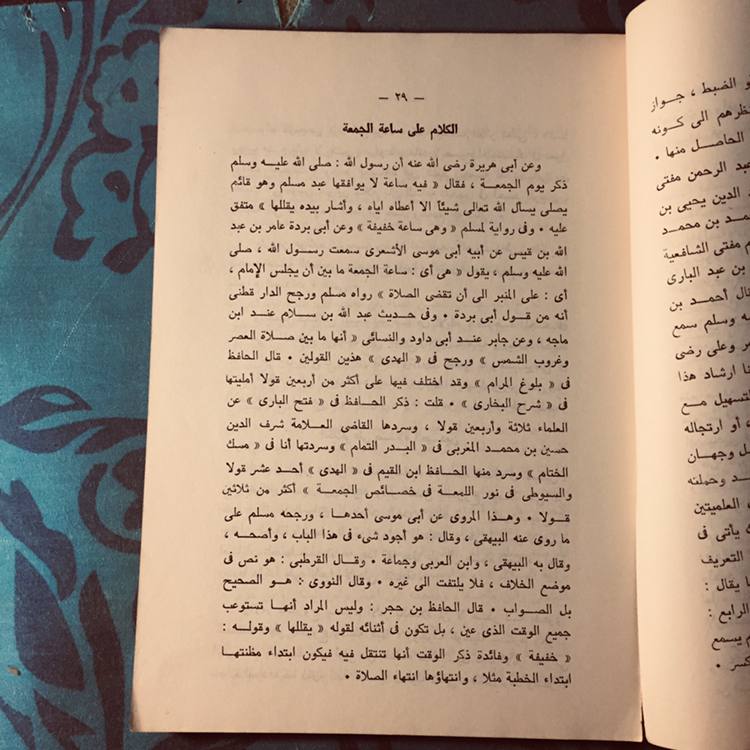 — ٢٩ —
الكلام على ساعة الجمعة
وعن أبى هريرة رضى الله عنه أن رسول الله : صلى الله عليه وسلم
ذكر يوم الجمعة ، فقال « فيه ساعة لا يوافقها عبد مسلم وهو قائم
يصلى يسأل الله تعالى شيئاً الا أعطاه اياه ، وأشار بيده يقللها » متفق
عليه ٠ وفى رواية لمسلم « وهى ساعة خفيفة » وعن أبى بردة عامر بن عبد
الله بن قيس عن أبيه أبى موسى الأشعرى سمعت رسول الله ، صلى
الله عليه وسلم ، يقول « هى أى : ساعة الجمعة ما بين أن يجلس الإمام ،
أى : على المنبر الى أن تقضى الصلاة » رواه مسلم ورجح الدار قطنى
أنه من قول أبى بردة ٠ وفى حديث عبد الله بن سلام عند ابن
ماجه ، وعن جابر عند أبى داود والنسائى « أنها ما بين صلاة العصر
وغروب الشمس » ورجح فى « الهدى » هذين القولين ٠ قال الحافظ
فى « بلوغ المرام » وقد اختلف فيها على أكثر من أربعين قولا أمليتها
فى « شرح البخارى » ٠ قلت : ذكر الحافظ فى « فتح البارى » عن
العلماء ثلاثة وأربعين قولا ، وسردها القاضى العلامة شرف الدين
حسين بن محمد المغربى فى « البدر التمام » وسردتها أنا فى « مسك
الختام » وسرد منها الحافظ ابن القيم فى « الهدى » أحد عشر قولا
والسيوطى فى نور اللمعة فى خصائص الجمعة » أكثر من ثلاثين
قولا ٠ وهذا المروى عن أبى موسى أحدها ، ورجحه مسلم على
ما روى عنه البيهقى ، وقال : هو أجود شىء فى هذا الباب ، وأصحه ،
وقال به البيهقى ، وابن العربى وجماعة ٠ وقال القرطبى : هو نص فى
موضع الخلاف ، فلا يلتفت الى غيره ٠ وقال النووى : هو الصحيح
بل الصواب ٠ قال الحافظ بن حجر : وليس المراد أنها تستوعب
جميع الوقت الذى عين ، بل تكون فى أثنائه لقوله « يقللها » وقوله :
« خفيفة » وفائدة ذكر الوقت أنها تنتقل فيه فيكون ابتداء مظنتها
ابتداء الخطبة مثلا ، وانتهاؤها انتهاء الصلاة ٠
و الضبط ، جواز
ظرهم الى كونه
الحاصل منها ٠
عبد الرحمن مفتى
الدين يحيى بن
مد بن محمد
م مفتى الشافعية
بن عبد البارى
قال أحمد بن
ه وسلم سمع
مر وعلى رضى
نا ارشاد هذا
لتسهيل مع
، أو ارتجاله
ل وجهان
د وحملته
العلميتين
يأتى فى
التعريف
ا يقال :
الرابع :
م يسمع
كسر ٠